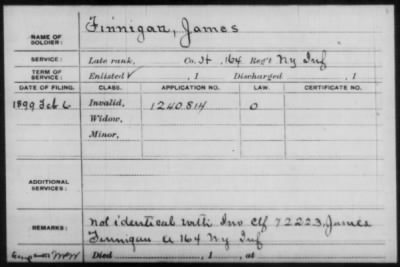 Finnigan, James
NAME OF SOLDIER:
SERVICE: Late rank, Co. H, 164 Reg't Ny Inf
TERM OF SERVICE: Enlisted , 1 Discharged , 1
DATE OF FILING. CLASS. APPLICATION NO. LAW. CERTIFICATE NO.
1899 Feb 6 Invalid, 1240814 O
Widow,
Minor,
ADDITIONAL SERVICES:
REMARKS: not identical with Inv Ctf 72223, James
Finnigan A 164 Ny Inf
Died , 1 , at